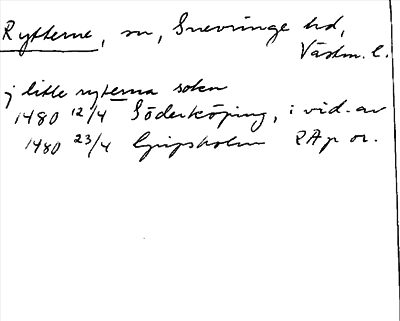 Rytterne, sn, Snevringe hd,
Västm. l.
j litle ryterna soken
1480 12/4 Söderköping, i vid. av
1480 23/4 Gripsholm RAp or.